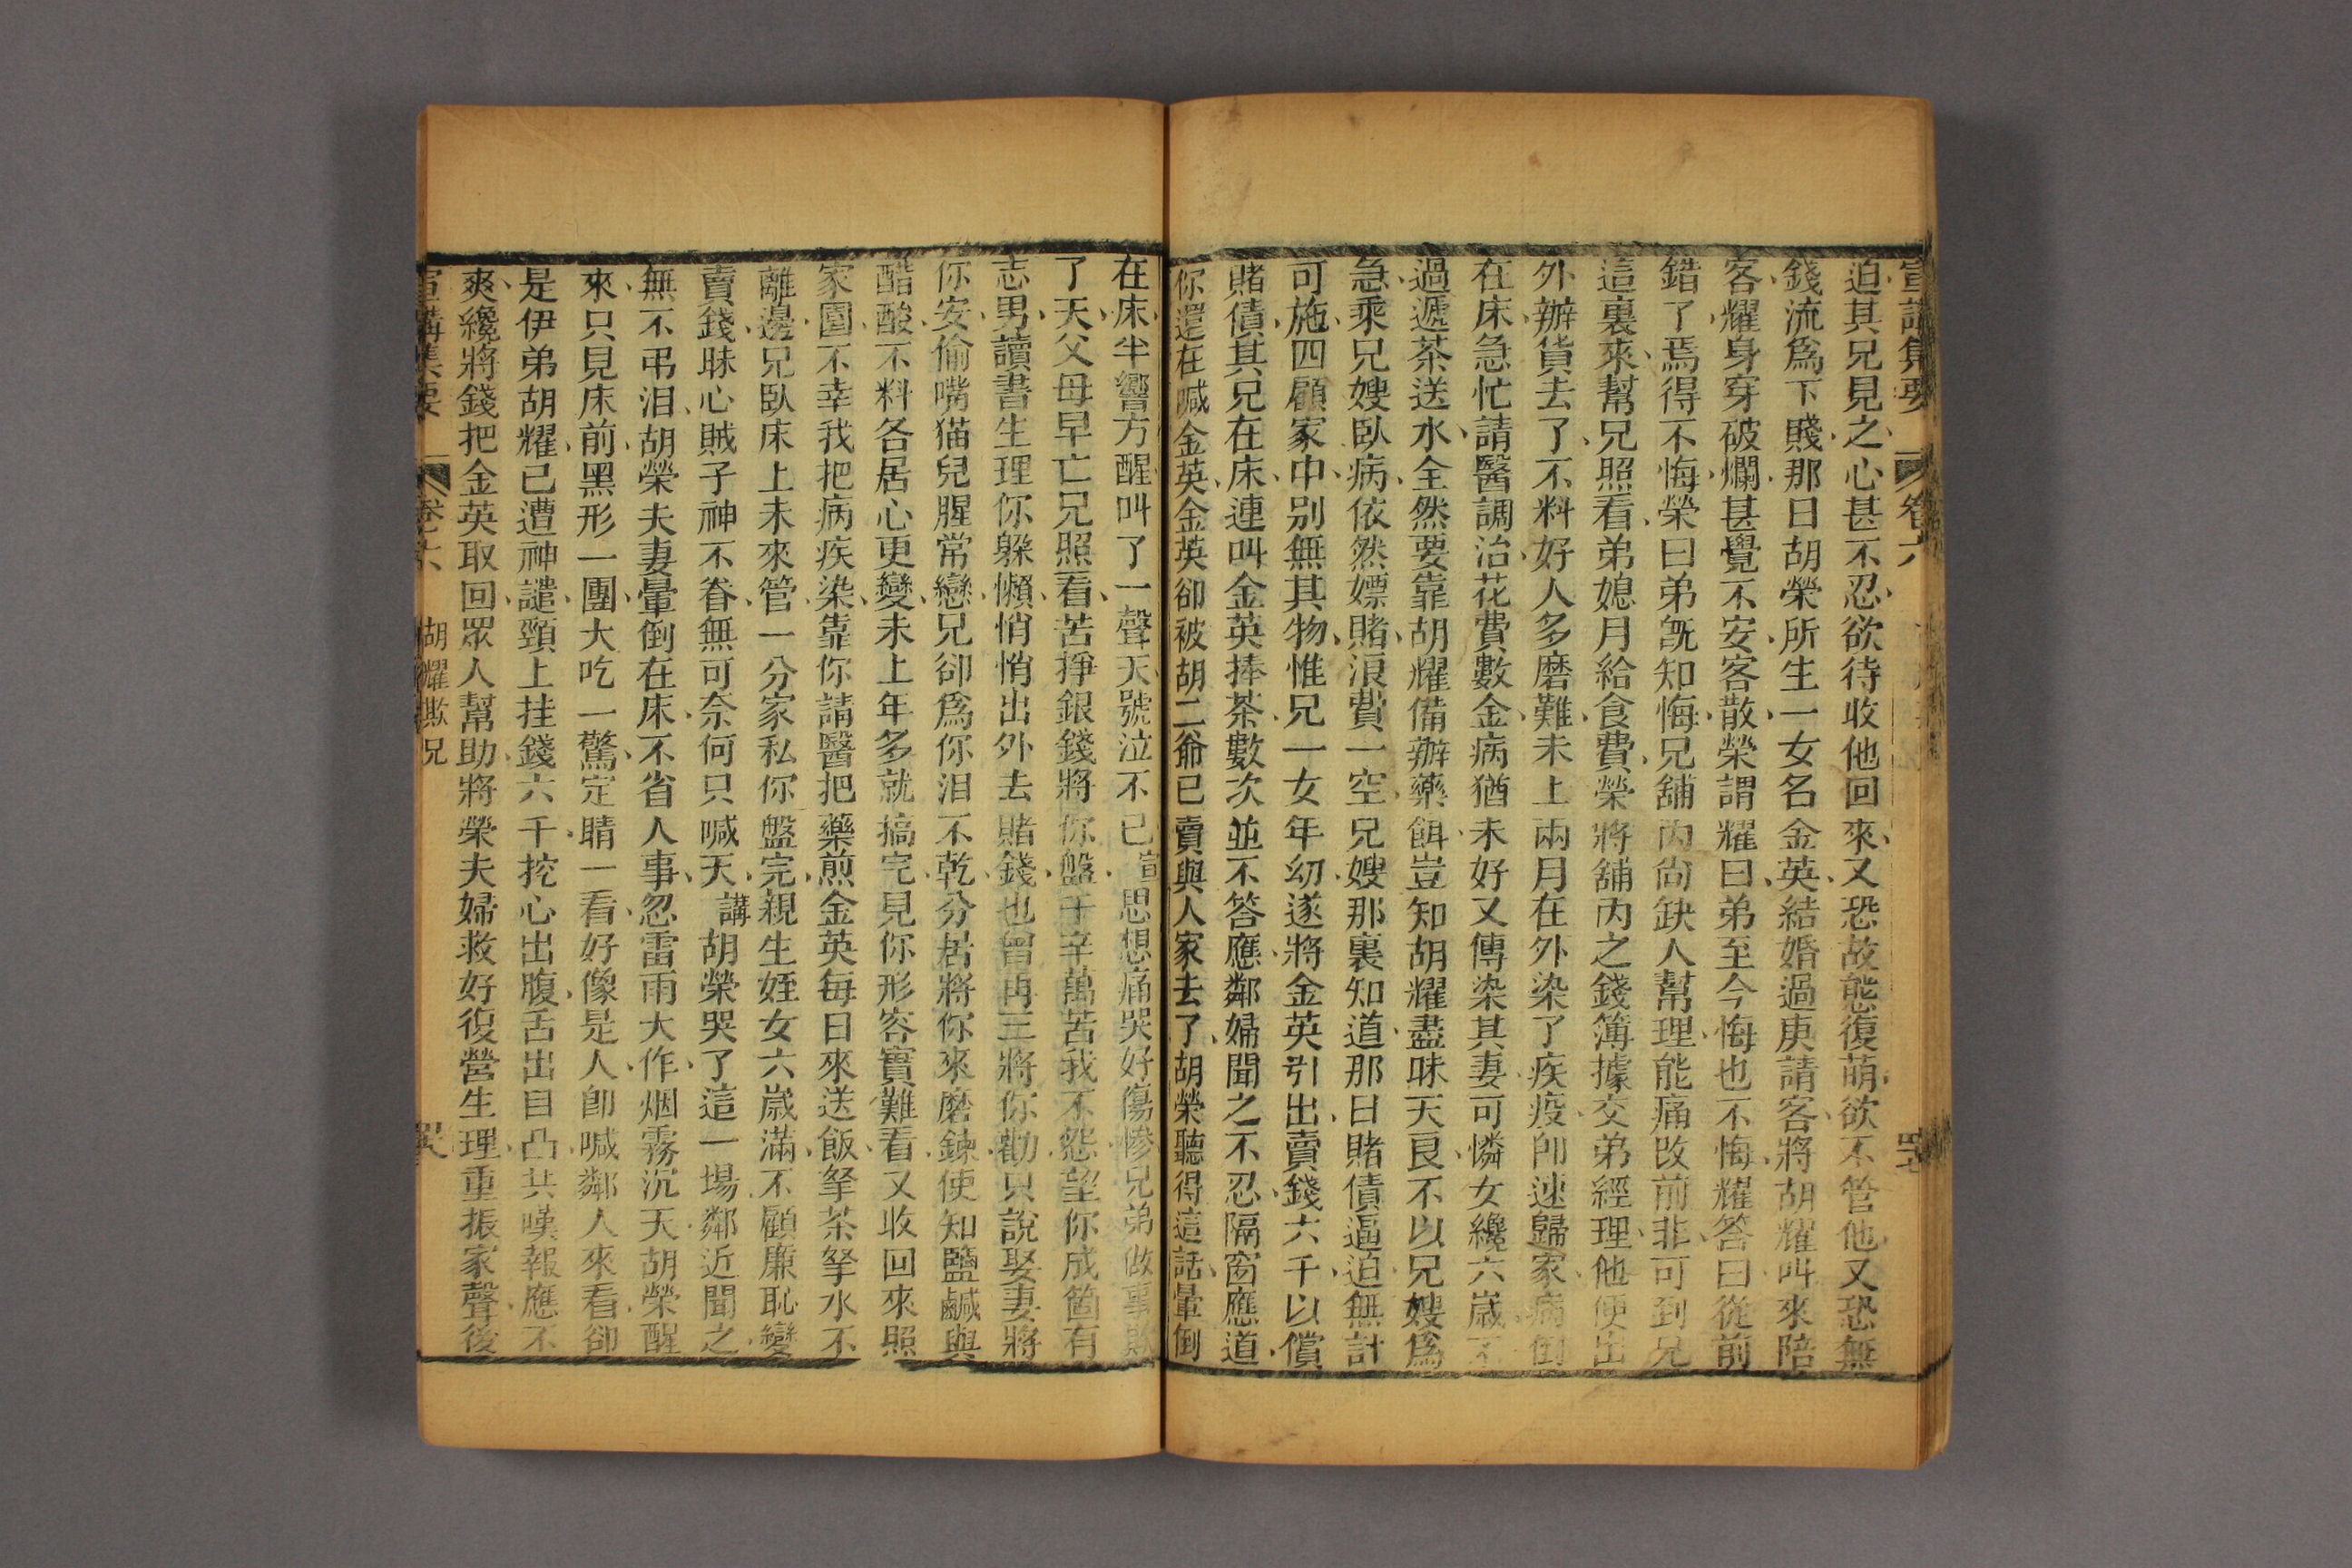 宣講集要 卷六
迫其兄見之心甚不忍欲待收他回來又恐故態復萌欲不管他又恐無
錢流爲下賤那日胡榮所生一女名金英結婚過庚請客將胡耀叫來陪
客耀身穿破爛甚覺不安客散榮謂耀曰弟至今悔也不悔耀答曰從前
錯了焉得不悔榮曰弟旣知悔兄舖內尙缺人幫理能痛改前非可到兄
這裏來幫兄照看弟媳月給食費榮將舖內之錢簿據交弟經理他便出
外辦貨去了不料好人多磨難未上兩月在外染了疾疫卽速歸家病倒
在床急忙請醫調治花費數金病猶未好又傳染其妻可憐女纔六歲不
過遞茶送水全然要靠胡耀備辦藥餌豈知胡耀盡昧天良不以兄嫂爲
急乘兄嫂臥病依然嫖賭浪費一空兄嫂那裏知道那日賭債逼迫無計
可施四顧家中別無其物惟兄一女年幼遂將金英引出賣錢六千以償
賭債其兄在床連叫金英捧茶數次並不答應鄰婦聞之不忍隔窗應道
你還在喊金英金英卻被胡二爺已賣與人家去了胡榮聽得這話暈倒
在床半響方醒叫了一聲天號泣不已 宣 思想痛哭好傷慘兄弟做事欺
了天父母早亡兄照看苦掙銀錢將你盤千辛萬苦我不怨望你成箇有
志男讀書生理你躲懶悄悄出外去賭錢也曾再三將你勸只說娶妻將
你安偷嘴猫兒腥常戀兄卻爲你泪不乾分居將你來磨鍊使知鹽鹹與
醋酸不料各居心更變未上年多就搞完見你形容實難看又收回來照
家園不幸我把病疾染靠你請醫把藥煎金英每日來送飯拏茶拏水不
離邊兄臥床上未來管一分家私你盤完親生姪女六歲滿不顧廉恥變
賣錢昧心賊子神不眷無可奈何只喊天 講 胡榮哭了這一場鄰近聞之
無不弔泪胡榮夫妻暈倒在床不省人事忽雷雨大作烟霧沉天胡榮醒
來只見床前黑形一團大吃一驚定睛一看好像是人卽喊鄰人來看卻
是伊弟胡耀已遭神譴頸上挂錢六千挖心出腹舌出目凸共嘆報應不
爽纔將錢把金英取回眾人幫助將榮夫婦救好復營生理重振家聲後
宣講集要 卷六 胡耀欺兄